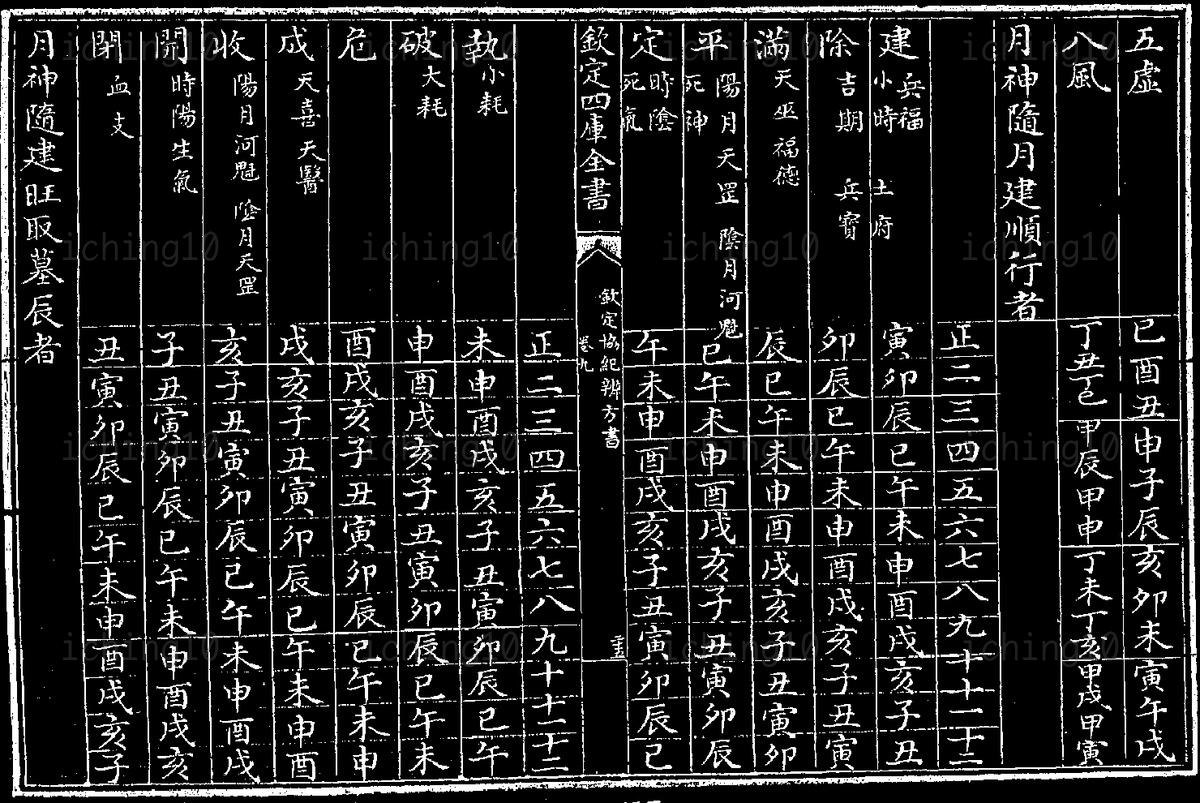 五虛 巳酉丑 申子辰 亥卯未 寅午戌
八風 丁丑巳 甲辰甲申 丁未丁亥 甲戌甲寅
月神隨月建順行者
正二三四五六七八九十十一十二
建 兵福 小時 土府 寅卯辰巳午未申酉戌亥子丑
除 吉期 兵寶 卯辰巳午未申酉戌亥子丑寅
滿 天巫 福德 辰巳午未申酉戌亥子丑寅卯
平 陽月天罡 陰月河魁 死神 巳午未申酉戌亥子丑寅卯辰
定 時陰 死氣 午未申酉戌亥子丑寅卯辰巳
欽定四庫全書
欽定協紀辨方書
卷九
正二三四五六七八九十十一十二
執 小耗 未申酉戌亥子丑寅卯辰巳午
破 大耗 申酉戌亥子丑寅卯辰巳午未
危 酉戌亥子丑寅卯辰巳午未申
成 天喜 天醫 戌亥子丑寅卯辰巳午未申酉
收 陽月河魁 陰月天罡 亥子丑寅卯辰巳午未申酉戌
開 時陽 生氣 子丑寅卯辰巳午未申酉戌亥
閉 血支 丑寅卯辰巳午未申酉戌亥子
月神隨建旺取墓辰者
iching10 iching10 iching10 iching10
iching10 iching10 iching10 iching10
iching10 iching10 iching10 iching10
iching10 iching10 iching10 iching10